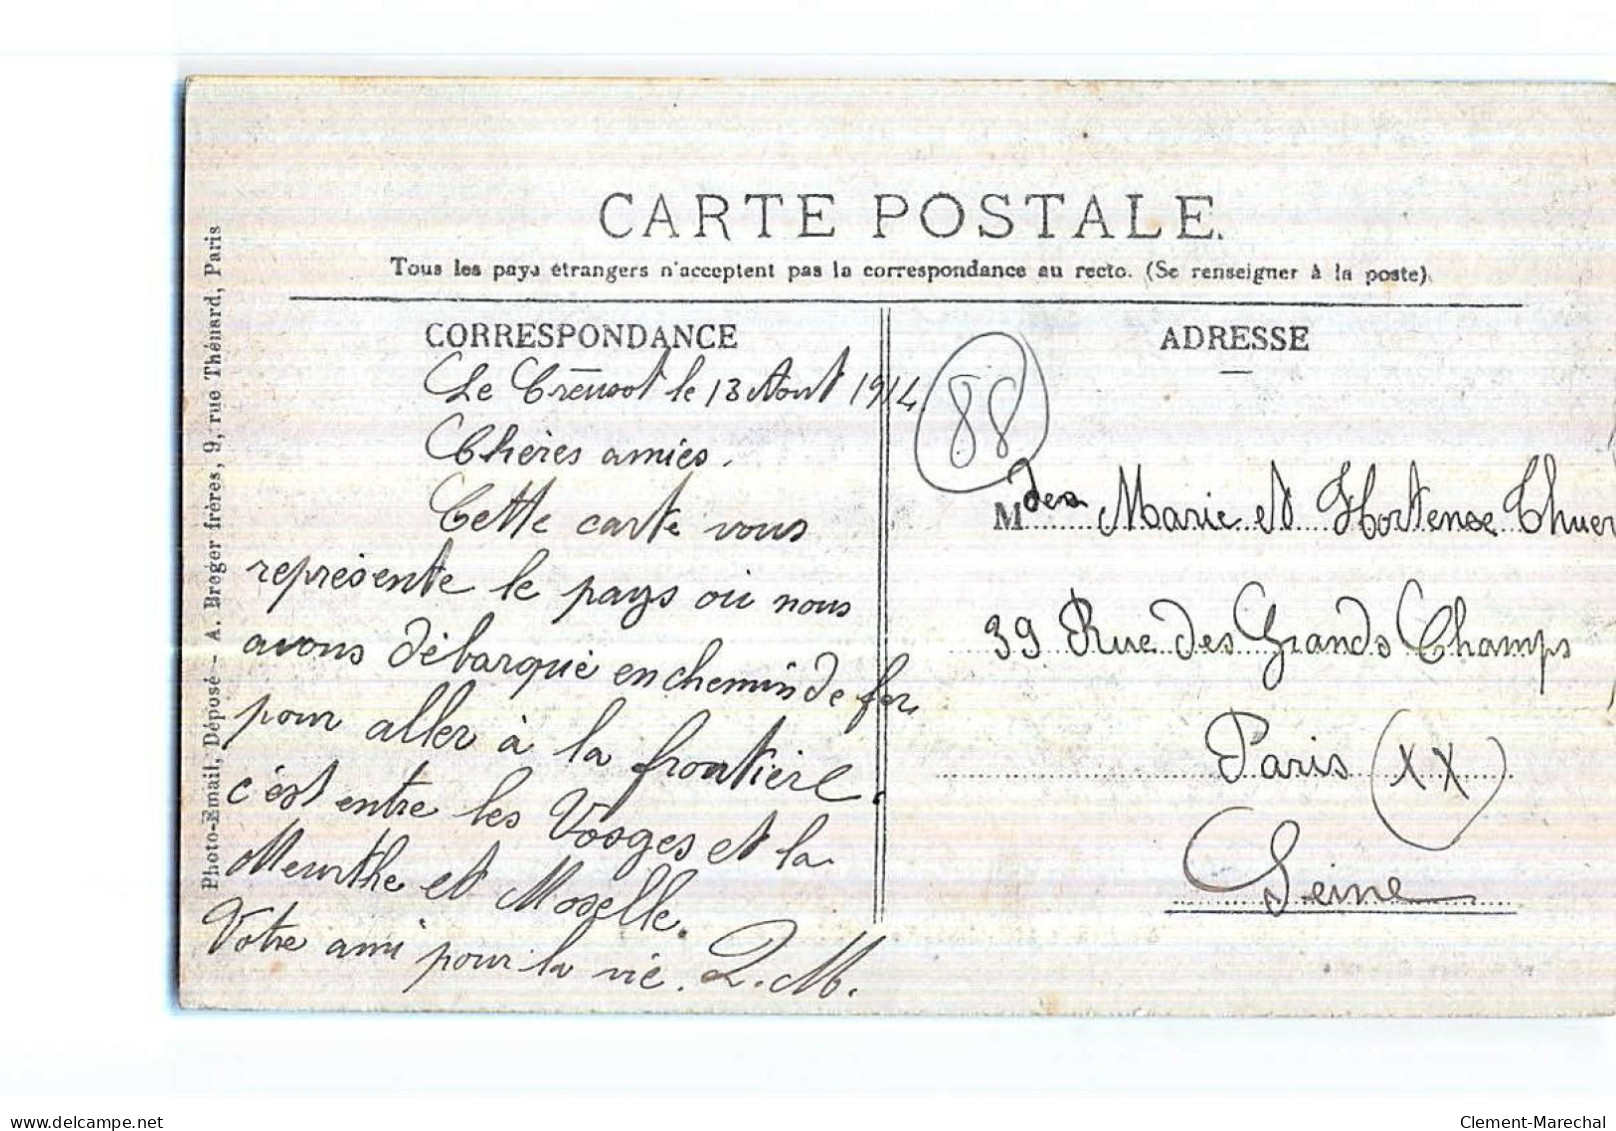 CARTE POSTALE.
Tous les pays étrangers n'acceptent pas la correspondance au recto. (Se renseigner à la poste).
Photo-Email, Déposé - A. Breger frères, 9, rue Thénard, Paris
CORRESPONDANCE
Le Creusot le 13 Aout 1914
Chères amies.
Cette carte vous
représente le pays où nous
avons débarqué en chemin de fer
pour aller à la frontière.
c'est entre les Vosges et la
Meurthe et Moselle.
Votre ami pour la vie. L. M.
ADRESSE
88
Mdes Marie et Hortense Thuer
39 Rue des Grands Champs
Paris (XX)
Seine
delcampe.net
Clement-Marechal